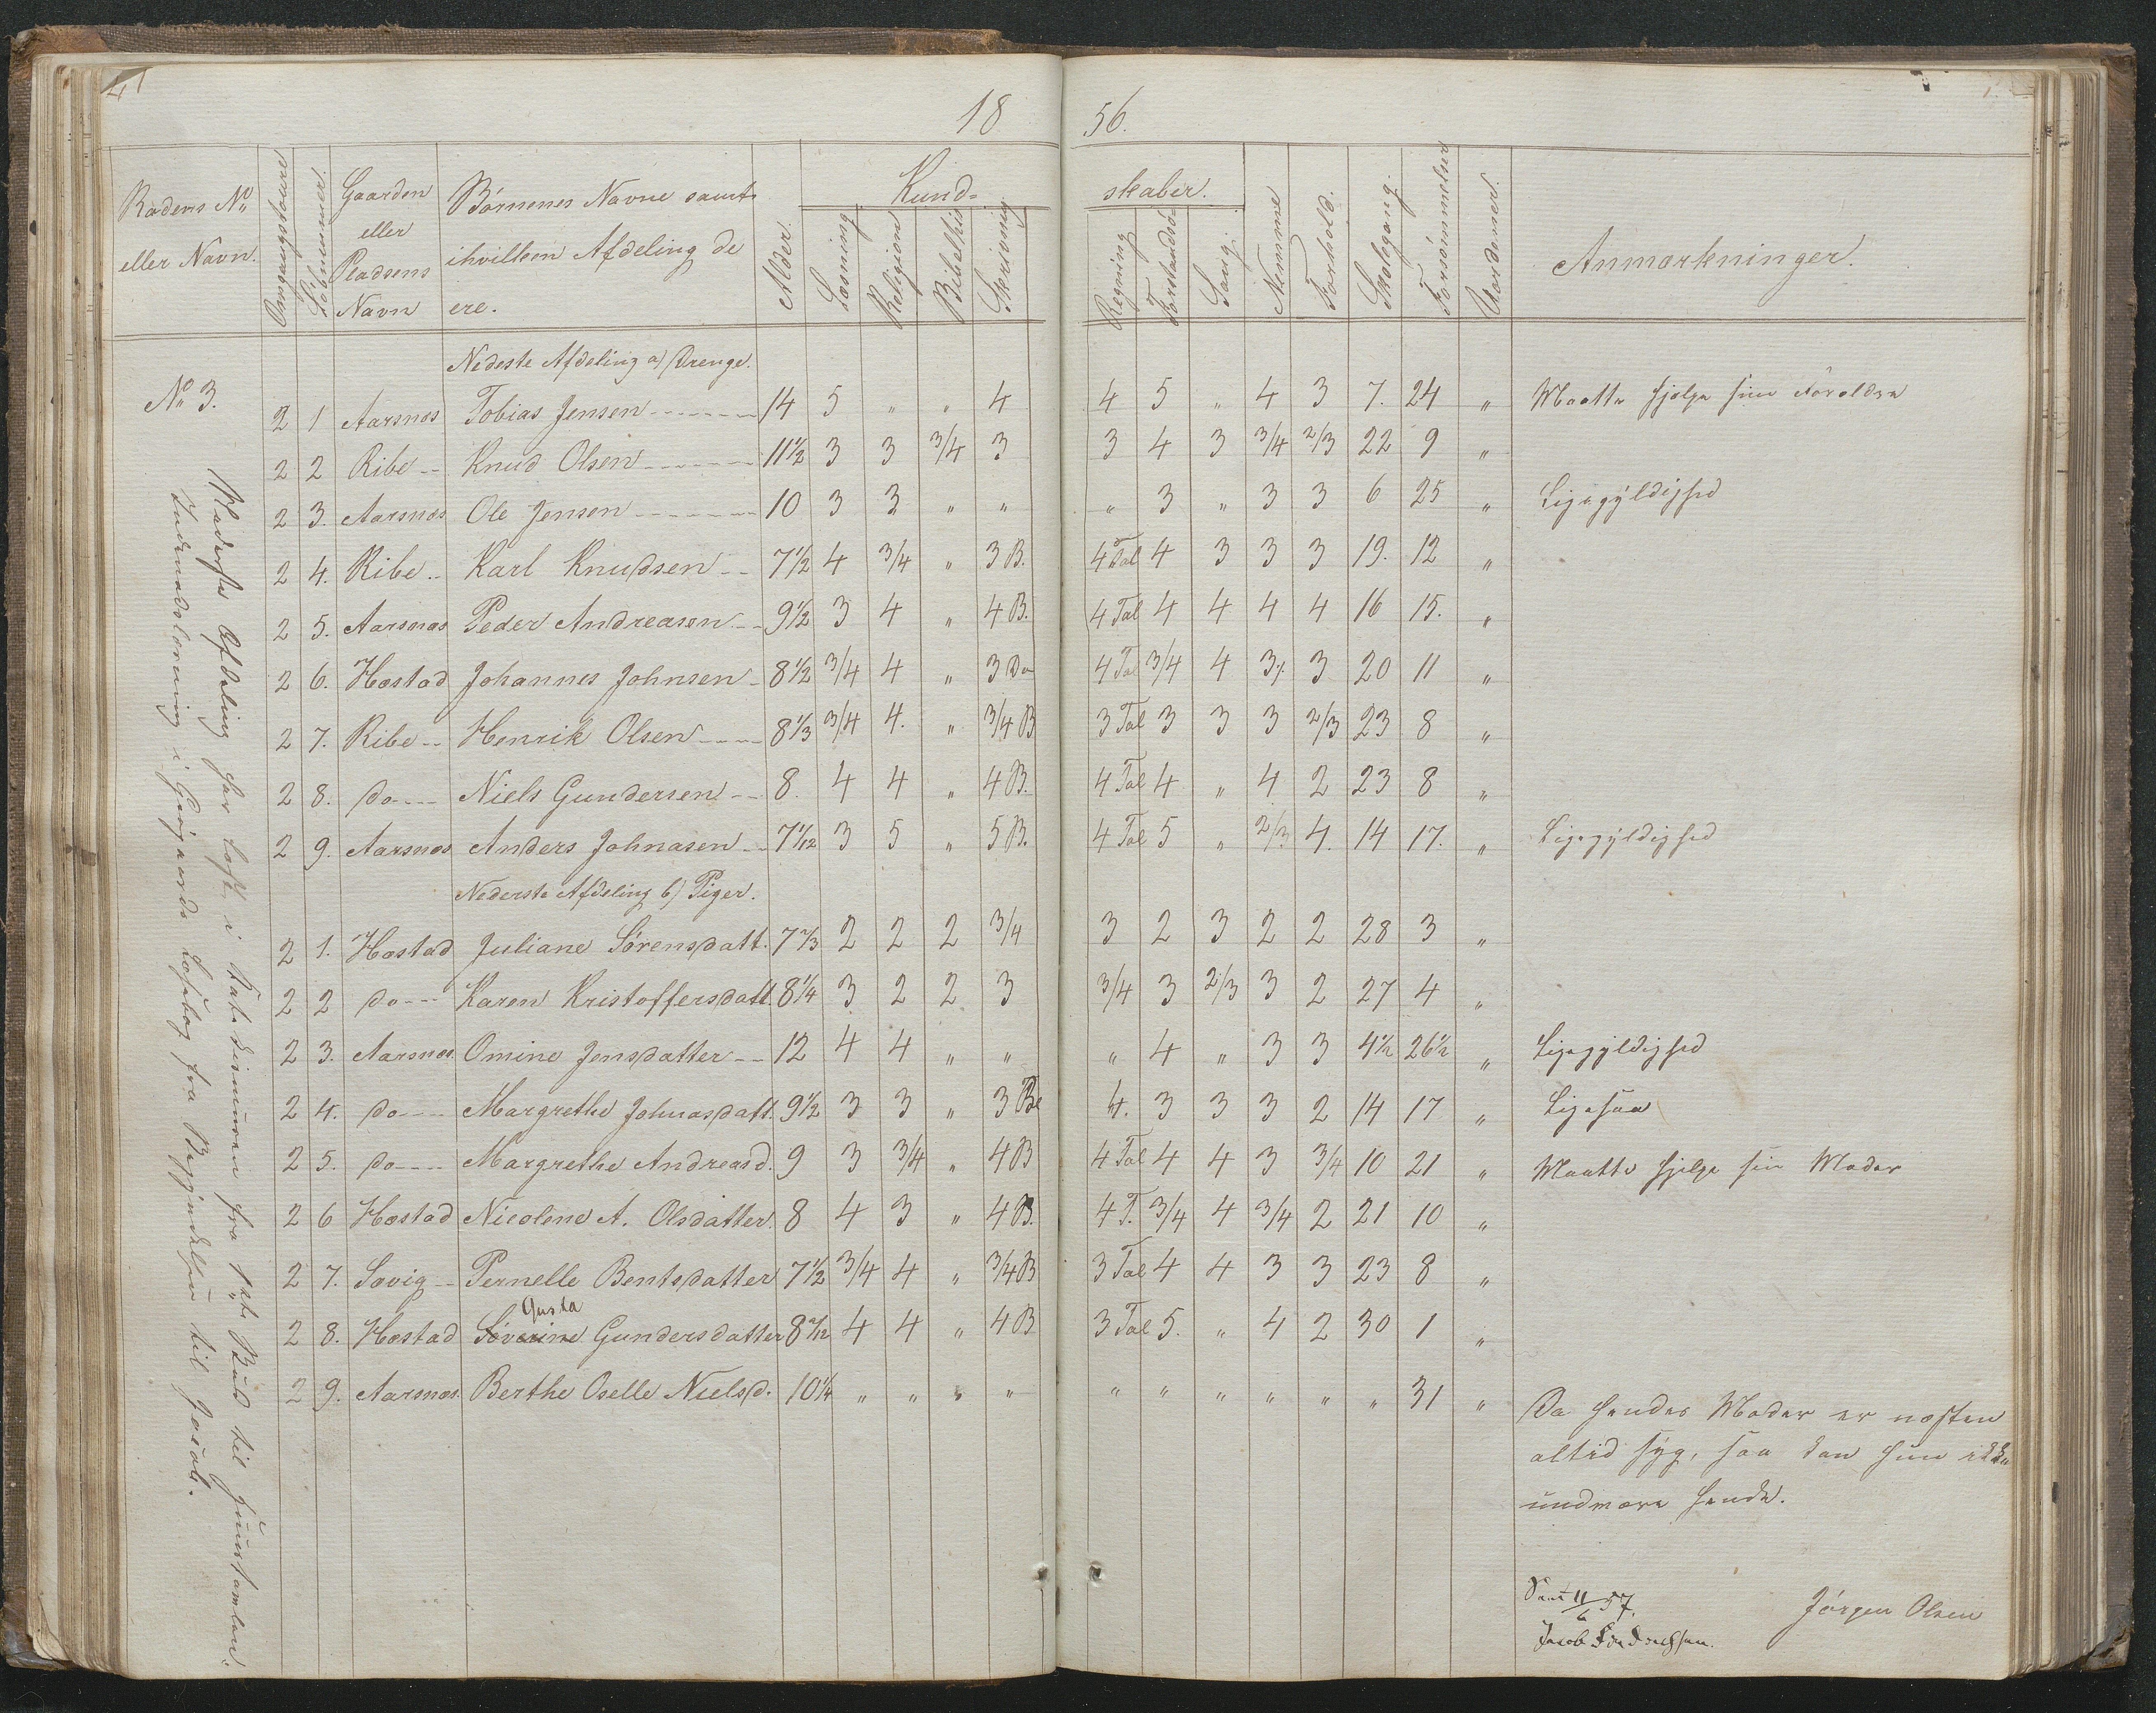 18 56.
Radens No eller Navn. Omgangstoure Löbenummer. Gaarden eller Pladsens Navn Børnenes Navne samt ihvilken Afdeling de ere. Alder. Kund- skaber. Læsning Religion Bibelhis Skrivning Regning Forstandsö Sang. Nemme Forhold. Skolegang. Forsömmelser Udedömer. Anmærkninger.
Nedeste Afdeling a) Drenge.
No 3.
2 1 Aarsnes Tobias Jensen 14 5 " " 4 4 5 " 4 3 7. 24 " Maatte hjelpe sine Foreldre
2 2 Ribe Knud Olsen 11½ 3 3 3/4 3 3 4 3 3/4 2/3 22 9 "
2 3. Aarsnes Ole Jensen 10 3 3 " " " 3 " 3 3 6 25 " Ligegyldighed
2 4. Ribe Karl Knudsen 7½ 4 3/4 " 3 B. 4 Tal 4 3 3 3 19. 12 "
2 5. Aarsnes Peder Andreasen 9½ 3 4 " 4 B. 4 Tal 4 4 4 4 16 15. "
2 6. Høstad Johannes Johnsen 8½ 3/4 4 " 3 Do 4 Tal 3/4 4 3 3 20 11 "
2 7. Ribe Henrik Olsen 8⅓ 3/4 4. " 3/4 B 3 Tal 3 3 3 2/3 23 8 "
2 8. do Niels Gundersen 8. 4 4 " 4 B. 4 Tal 4 " 4 2 23 8 "
2 9. Aarsnes Anders Johnasen 7 1/12 3 5 " 5 B. 4 Tal 5 " 2/3 4. 14 17. " Ligegyldighed
Nederste Afdeling b) Piger.
2 1. Høstad Juliane Sörensdatt. 7⅔ 2 2 2 3/4 3 2 3 2 2 28 3 "
2 2 do Karen Kristoffersdatt 8¼ 3 2 2 3 3/4 3 2/3 3 2 27 4 "
2 3. Aarsnes. Omine Jensdatter 12 4 4 " " " 4 " 3 3 4½ 26½ " Ligegyldighed
2 4. do Margrethe Johnasdatt. 9½ 3 3 " 3 Be 4. 3 3 3 2 14 17 " Ligesaa
2 5. do Margrethe Andreasd. 9 3 3/4 " 4 B 4 Tal 4 4 3 3/4 10 21 " Maatte hjelpe sin Moder
2 6 Høstad Nicolene A. Olsdatter. 8 4 3 " 4 B. 4 T. 3/4 4 3/4 2 21 10 "
2 7. Søvig Pernelle Bentsdatter 7½ 3/4 4 " 3/4 B 3 Tal 4 4 3 3 23 8 "
Gusta
2 8. Høstad Severine Gundersdatter 8 7/12 4 4 " 4 B 3 Tal 5. " 4 2 30 1 "
2 9. Aarsnes. Berthe Oselle Nielsd. 10¼ " " " " " " " " " " 31 " Da hendes Moder er næsten
altid syg, saa kan hun ikke
undvære hende.
Nederste Afdeling har læst i Katekismusen fra 1ste Bud til
Indenadslæsning i Læsebog fra Begyndelsen til
Seet 11/6 57.
Jacob
Jörgen Olsen